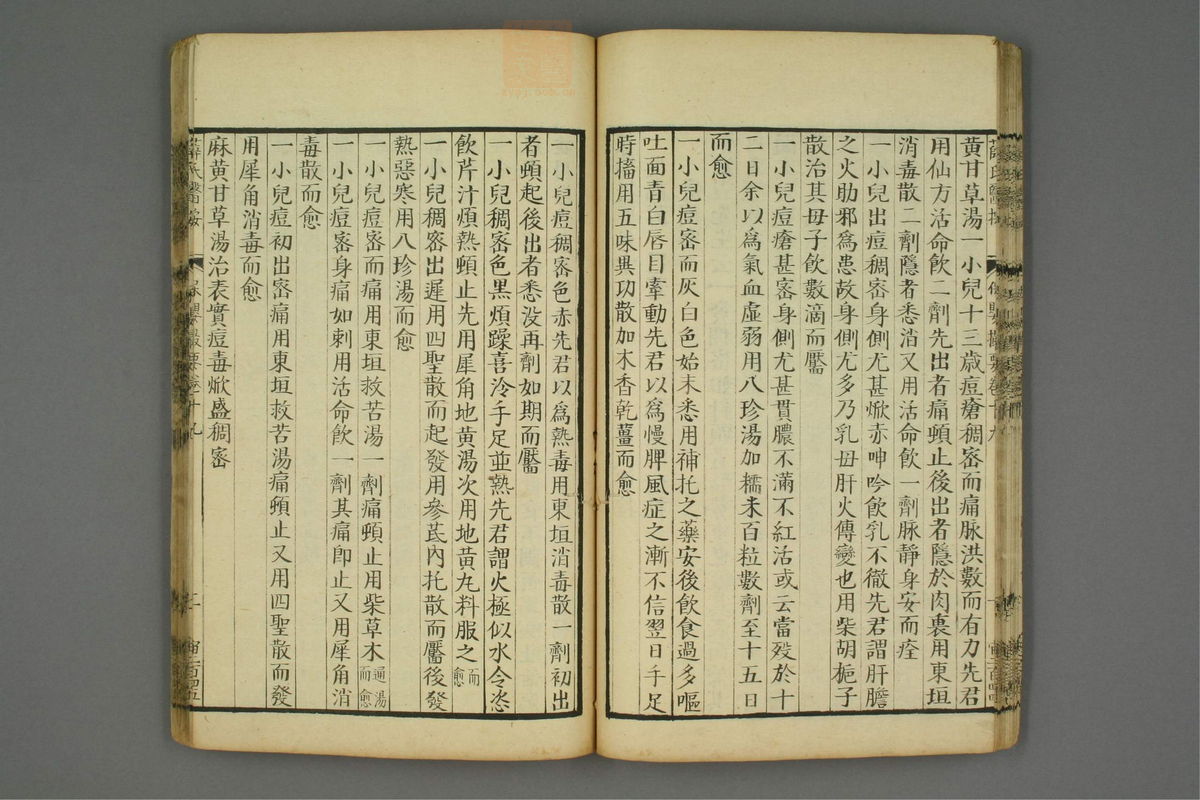 黃甘草湯一小兒十三歲痘瘡稠密而痛脉洪數而有力先君
用仙方活命飲二劑先出者痛頓止後出者隱於肉裏用東垣
消毒散二劑隱者悉消又用活命飲一劑脉靜身安而痊
一小兒出痘稠密身側尤甚焮赤呻吟飲乳不徹先君謂肝膽
之火助邪爲患故身側尤多乃乳母肝火傳變也用柴胡梔子
散治其母子飲數滴而靨
一小兒痘瘡甚密身側尤甚貫膿不滿不紅活或云當歿於十
二日余以爲氣血虛弱用八珍湯加糯米百粒數劑至十五日
而愈
一小兒痘密而灰白色始末悉用補托之藥安後飲食過多嘔
吐面青白唇目牽動先君以爲慢脾風症之漸不信翌日手足
時搐用五味異功散加木香乾薑而愈
一小兒痘稠密色赤先君以爲熱毒用東垣消毒散一劑初出
者頓起後出者悉没再劑如期而靨
一小兒稠密色黑煩躁喜冷手足並熱先君謂火極似水令恣
飲芹汁煩熱頓止先用犀角地黃湯次用地黃丸料服之而愈
一小兒稠密出遲用四聖散而起發用參芪內托散而靨後發
熱惡寒用八珍湯而愈
一小兒痘密而痛用東垣救苦湯一劑痛頓止用柴草木通湯而愈
一小兒痘密身痛如刺用活命飲一劑其痛卽止又用犀角消
毒散而愈
一小兒痘初出密痛用東垣救苦湯痛頓止又用四聖散而發
用犀角消毒而愈
麻黃甘草湯治表實痘毒焮盛稠密
薛氏醫按
保嬰撮要卷十九
二